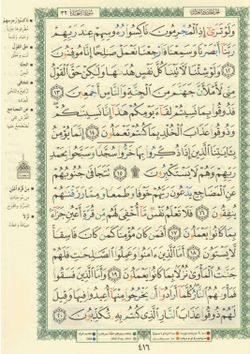 وَلَوْ تَرَىٰ إِذِ الْمُجْرِمُونَ نَاكِسُوا رُءُوسِهِمْ عِندَ رَبِّهِمْ
رَبَّنَا أَبْصَرْنَا وَسَمِعْنَا فَارْجِعْنَا نَعْمَلْ صَالِحًا إِنَّا مُوقِنُونَ
١٢ وَلَوْ شِئْنَا لَآتَيْنَا كُلَّ نَفْسٍ هُدَاهَا وَلَٰكِنْ حَقَّ الْقَوْلُ
مِنِّي لَأَمْلَأَنَّ جَهَنَّمَ مِنَ الْجِنَّةِ وَالنَّاسِ أَجْمَعِينَ ١٣
فَذُوقُوا بِمَا نَسِيتُمْ لِقَاءَ يَوْمِكُمْ هَٰذَا إِنَّا نَسِينَاكُمْ
وَذُوقُوا عَذَابَ الْخُلْدِ بِمَا كُنتُمْ تَعْمَلُونَ ١٤ إِنَّمَا يُؤْمِنُ
بِآيَاتِنَا الَّذِينَ إِذَا ذُكِّرُوا بِهَا خَرُّوا سُجَّدًا وَسَبَّحُوا بِحَمْدِ
رَبِّهِمْ وَهُمْ لَا يَسْتَكْبِرُونَ ١٥ تَتَجَافَىٰ جُنُوبُهُمْ
عَنِ الْمَضَاجِعِ يَدْعُونَ رَبَّهُمْ خَوْفًا وَطَمَعًا وَمِمَّا رَزَقْنَاهُمْ
يُنفِقُونَ ١٦ فَلَا تَعْلَمُ نَفْسٌ مَّا أُخْفِيَ لَهُم مِّن قُرَّةِ أَعْيُنٍ جَزَاءً
بِمَا كَانُوا يَعْمَلُونَ ١٧ أَفَمَن كَانَ مُؤْمِنًا كَمَن كَانَ فَاسِقًا
لَّا يَسْتَوُونَ ١٨ أَمَّا الَّذِينَ آمَنُوا وَعَمِلُوا الصَّالِحَاتِ فَلَهُمْ
جَنَّاتُ الْمَأْوَىٰ نُزُلًا بِمَا كَانُوا يَعْمَلُونَ ١٩ وَأَمَّا الَّذِينَ فَسَقُوا
فَمَأْوَاهُمُ النَّارُ كُلَّمَا أَرَادُوا أَن يَخْرُجُوا مِنْهَا أُعِيدُوا فِيهَا وَقِيلَ
لَهُمْ ذُوقُوا عَذَابَ النَّارِ الَّذِي كُنتُم بِهِ تُكَذِّبُونَ ٢٠
٤١٦